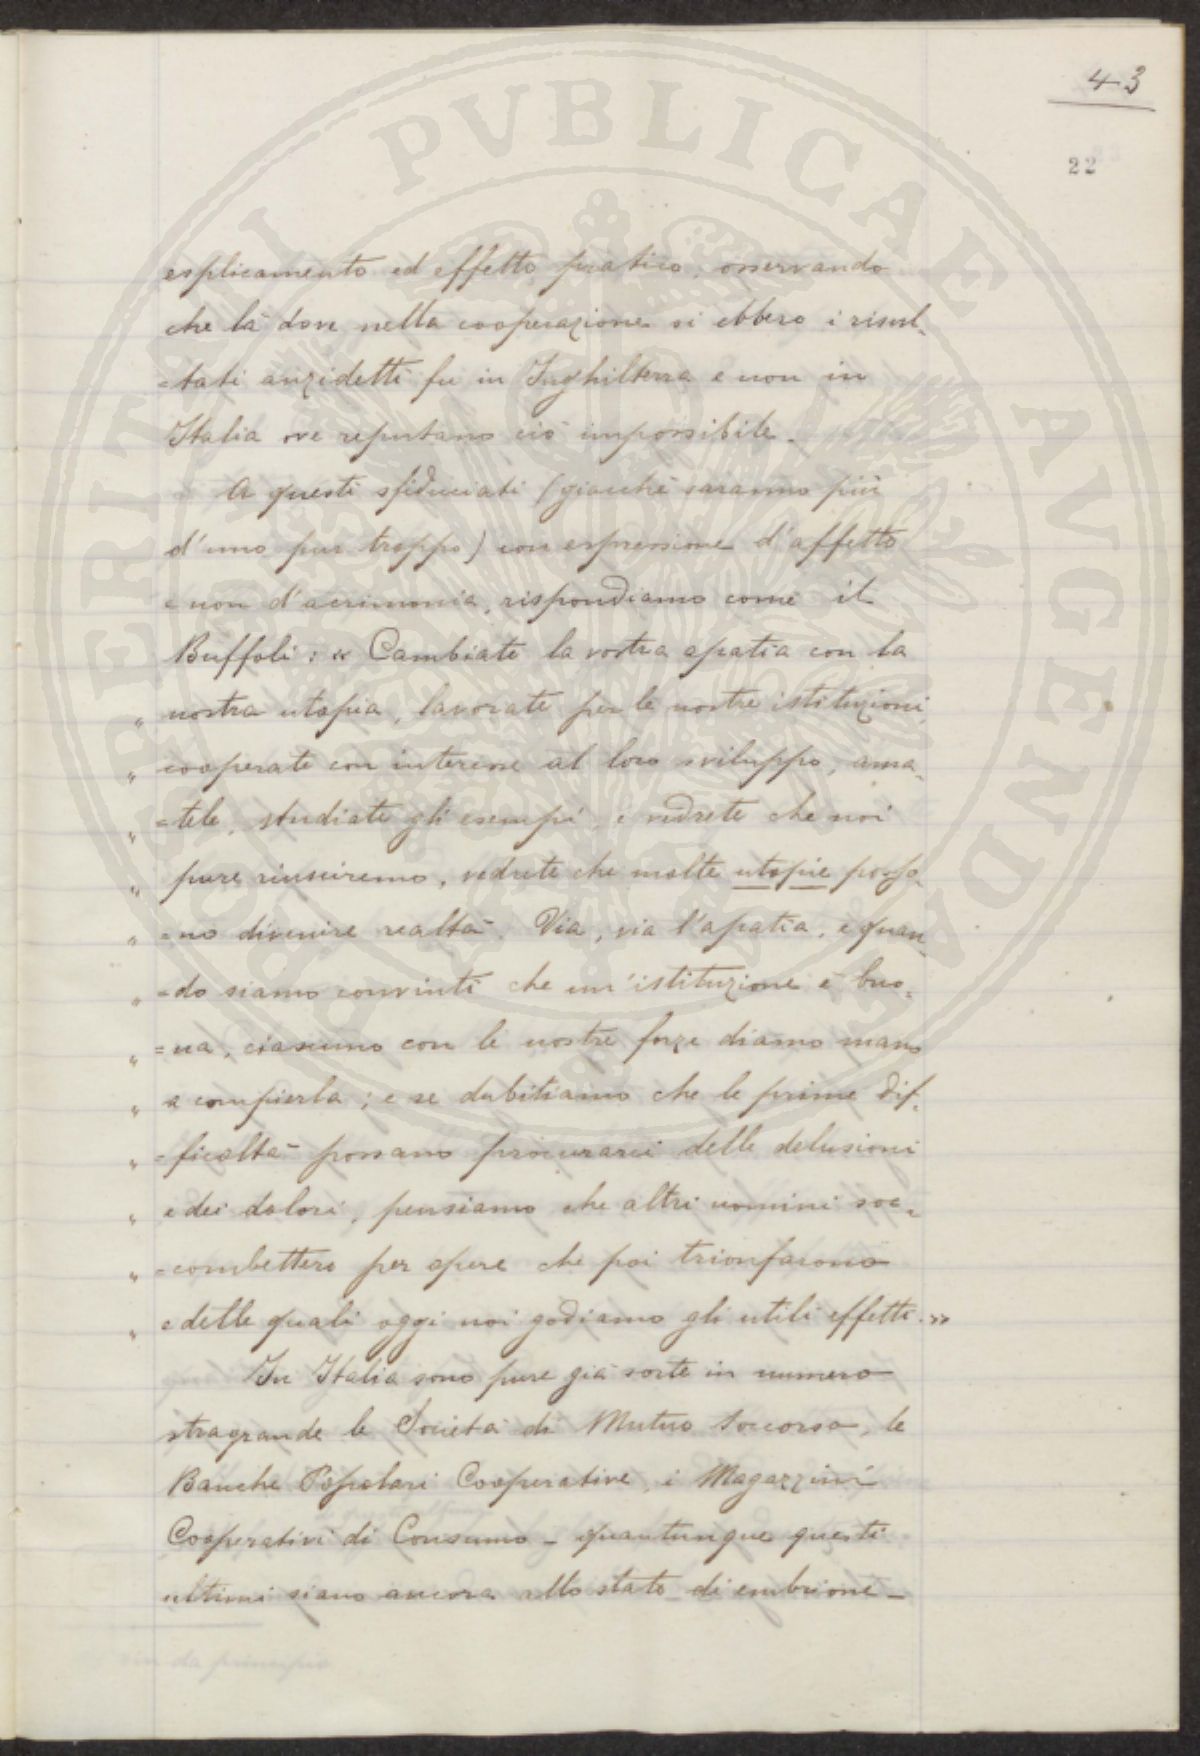 43
22
PROSPERITATI PVBLICAE AVGENDAE
esplicamento ed effetto pratico, osservando
che là dove nella cooperazione si ebbero i risul-
=tati anzidetti fu in Inghilterra e non in
Italia ove reputano ciò impossibile.
A questi sfiduciati (giacchè saranno più
d'uno pur troppo) con espressione d'affetto
e non d'acrimonia, rispondiamo come il
Buffoli: « Cambiate la vostra apatia con la
" nostra utopia, lavorate per le nostre istituzioni,
" cooperate con interesse al loro sviluppo, ama-
" =tele, studiate gli esempi, e vedrete che noi
" pure riusciremo, vedrete che molte utopie posso-
" =no divenire realtà. Via, via l'apatia, e quan-
" =do siamo convinti che un'istituzione è buo-
" =na, ciascuno con le nostre forze diamo mano
" a compierla; e se dubitiamo che le prime dif-
" =ficoltà possano procurarci delle delusioni
" e dei dolori, pensiamo che altri uomini soc-
" =combettero per opere che poi trionfarono
" e delle quali oggi noi godiamo gli utili effetti.»
In Italia sono pure già sorte in numero
stragrande le Società di Mutuo Soccorso, le
Banche Popolari Cooperative, i Magazzini
Cooperativi di Consumo - quantunque questi
ultimi siano ancora allo stato di embrione -